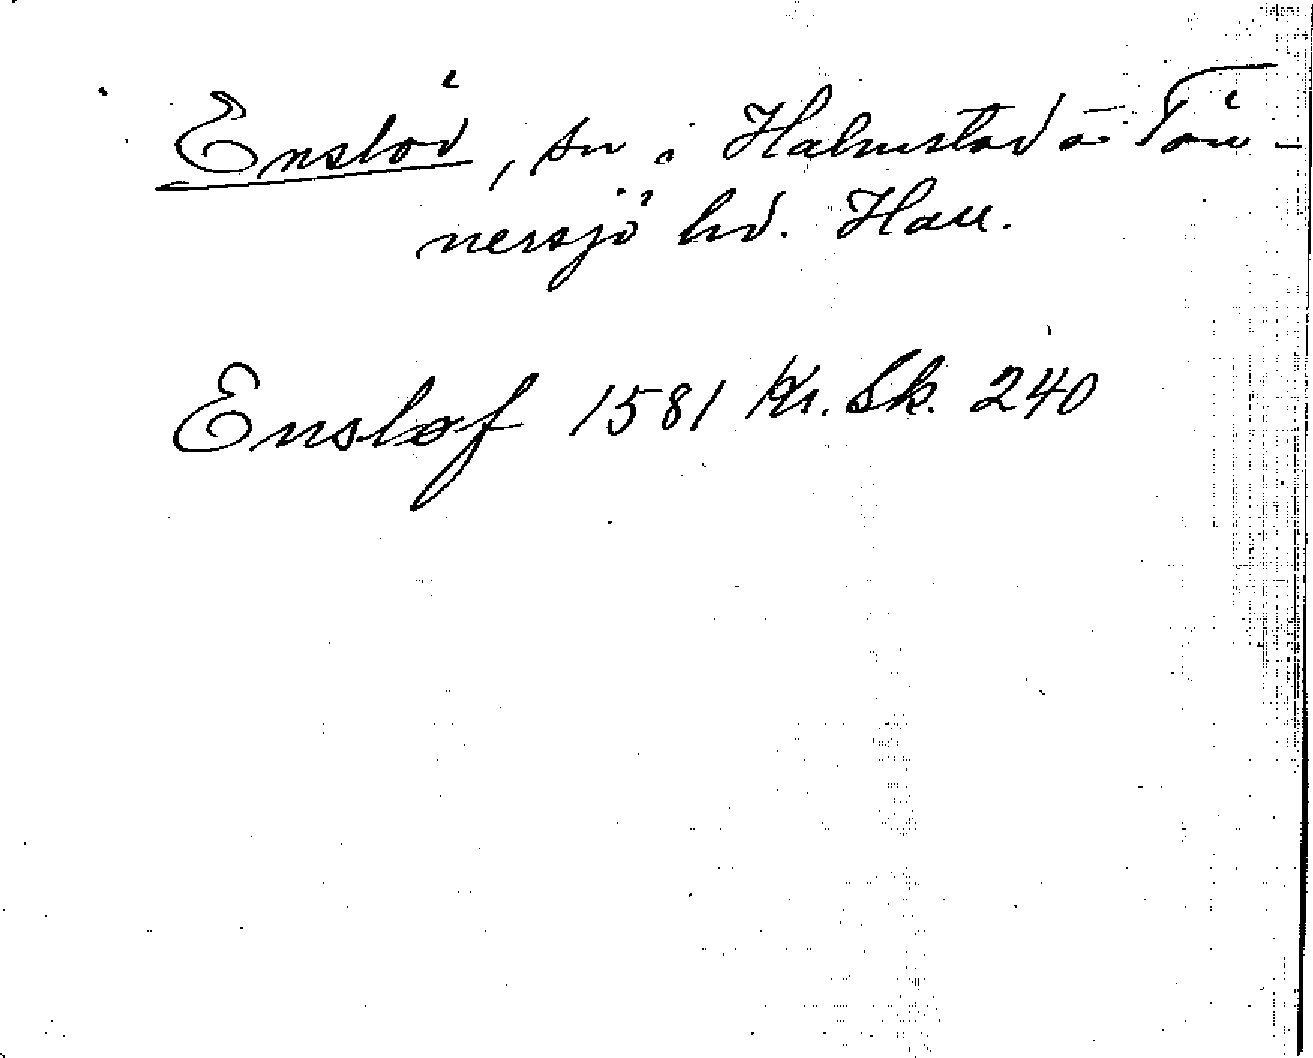 Enslöv, sn i Halmstad o. Tön-
nersjö hd. Hall.
Ensløf 1581 Kr. Sk. 240